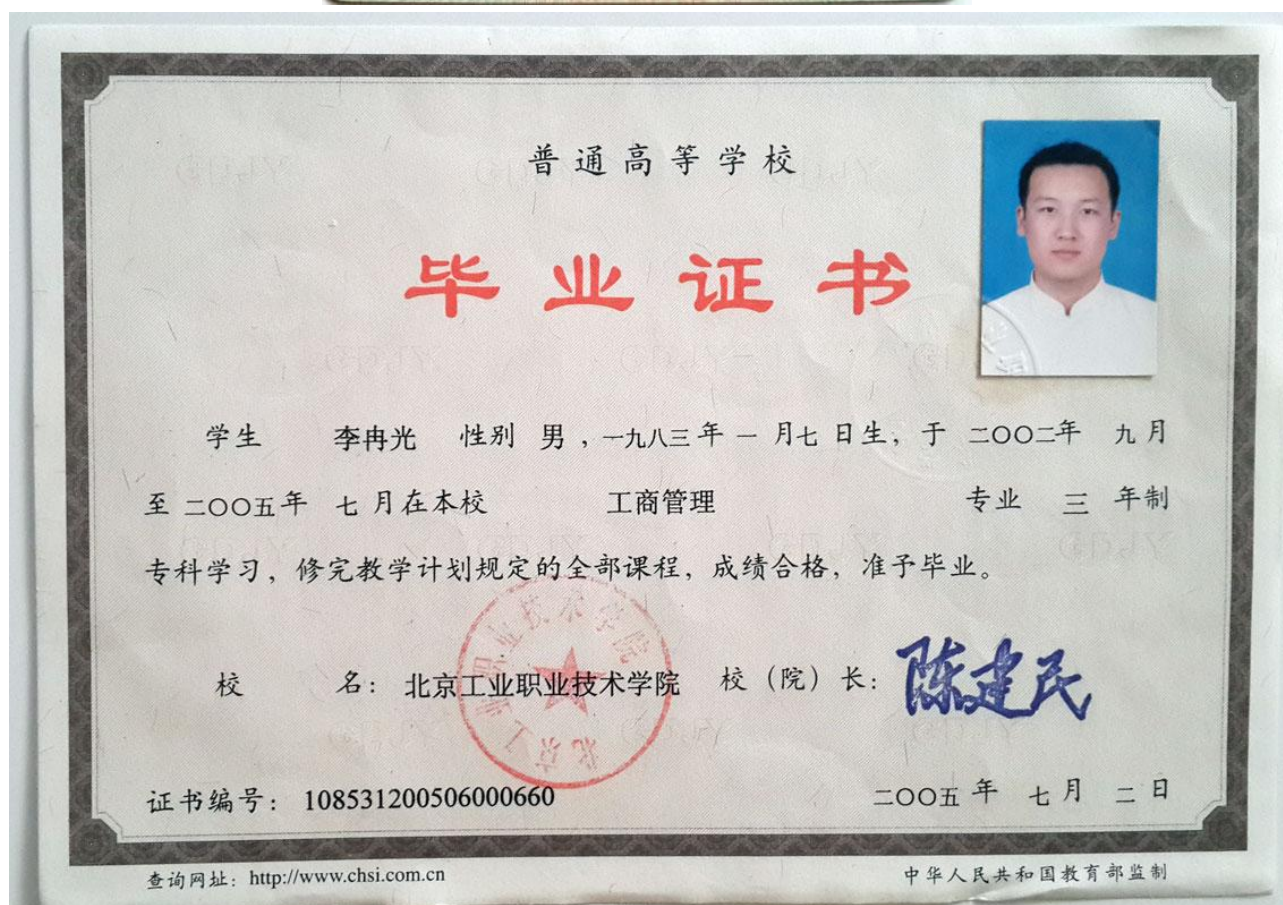 普通高等学校
毕业证书
学生 李冉光 性别 男，一九八三年 一 月七 日生，于 二〇〇二年 九月
至二〇〇五年 七月在本校 工商管理 专业 三 年制
专科学习，修完教学计划规定的全部课程，成绩合格，准予毕业。
校 名：北京工业职业技术学院 校（院）长：陈建民
北京工业职业技术学院
证书编号：108531200506000660 二〇〇五年 七月 二日
查询网址：http://www.chsi.com.cn 中华人民共和国教育部监制